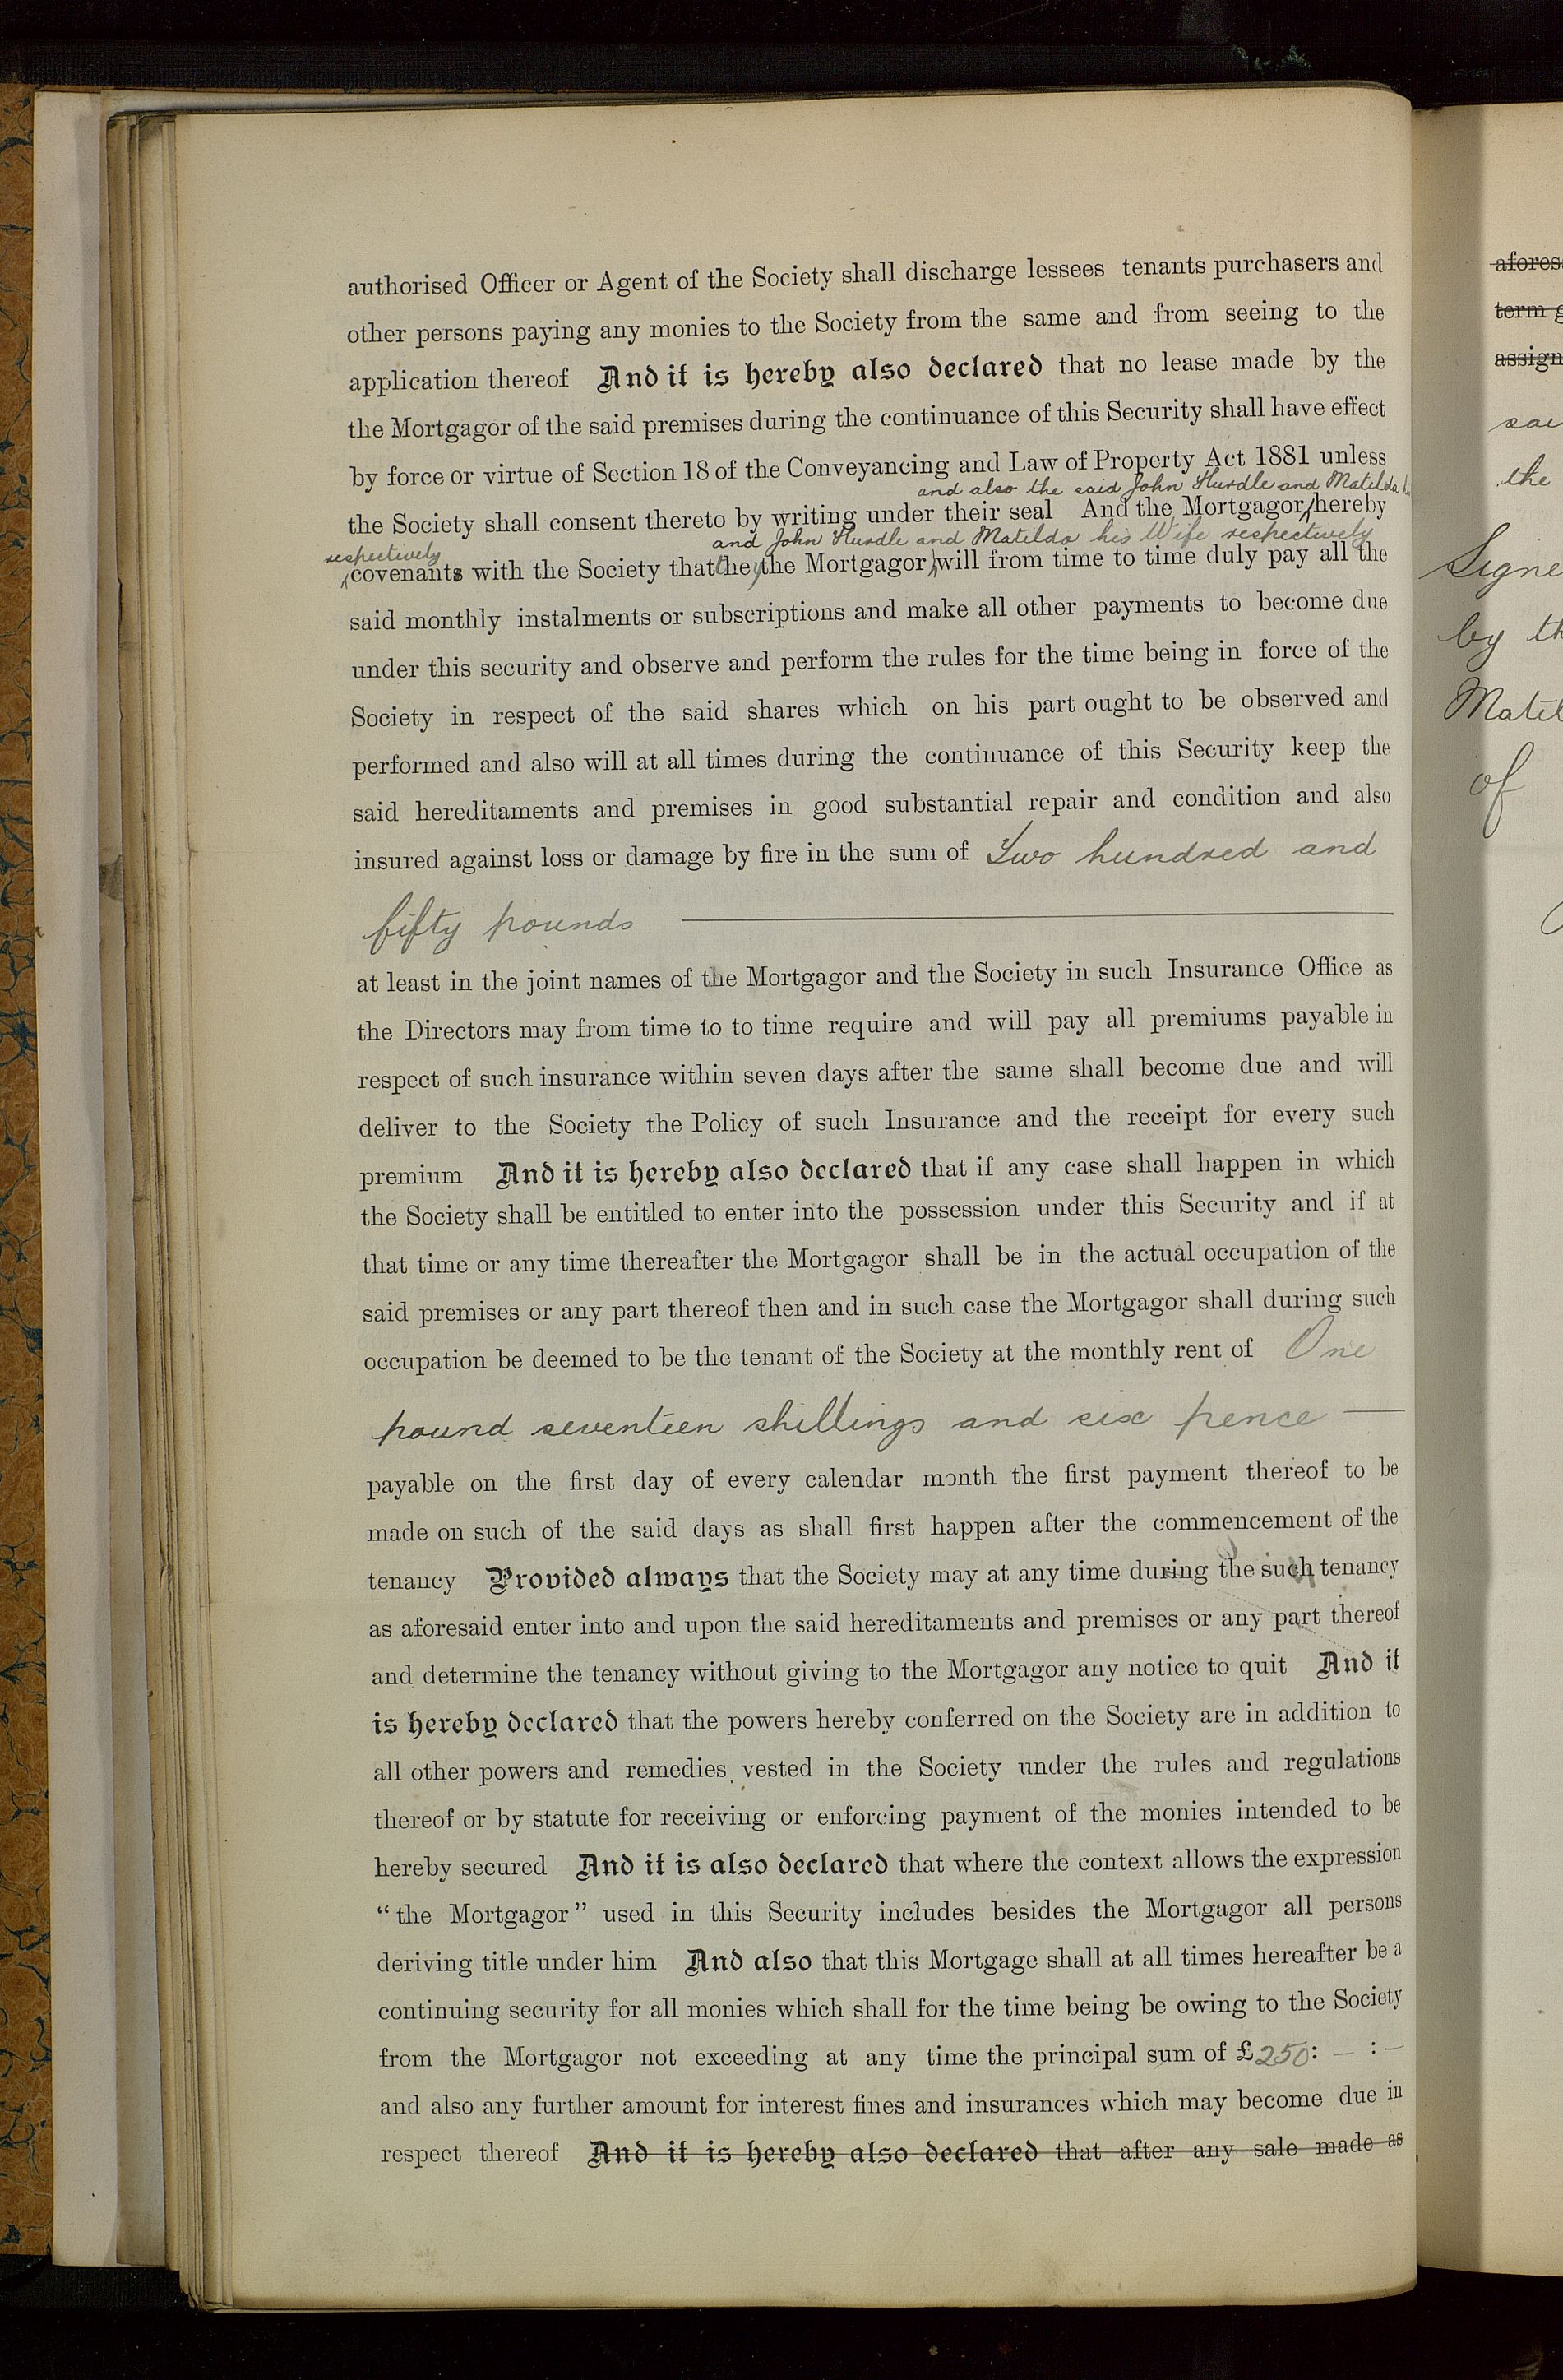 authorised Officer or Agent of the Society shall discharge lessees tenants purchasers and
other persons paying any monies to the Society from the same and from seeing to the
application thereof And it is hereby also declared that no lease made by the
the Mortgagor of the said premises during the continuance of this Security shall have effect
by force or virtue of Section 18 of the Conveyancing and Law of Property Act 1881 unless
and also the said John Hurdle and Matilda
the Society shall consent thereto by writing under their seal And the Mortgagor hereby
and John Hurdle and Matilda his Wife respectively
respectively
covenants with the Society that they the Mortgagor will from time to time duly pay all the
said monthly instalments or subscriptions and make all other payments to become due
under this security and observe and perform the rules for the time being in force of the
Society in respect of the said shares which on his part ought to be observed and
performed and also will at all times during the continuance of this Security keep the
said hereditaments and premises in good substantial repair and condition and also
insured against loss or damage by fire in the sum of Two hundred and
fifty pounds
at least in the joint names of the Mortgagor and the Society in such Insurance Office as
the Directors may from time to to time require and will pay all premiums payable in
respect of such insurance within seven days after the same shall become due and will
deliver to the Society the Policy of such Insurance and the receipt for every such
premium And it is hereby also declared that if any case shall happen in which
the Society shall be entitled to enter into the possession under this Security and if at
that time or any time thereafter the Mortgagor shall be in the actual occupation of the
said premises or any part thereof then and in such case the Mortgagor shall during such
occupation be deemed to be the tenant of the Society at the monthly rent of One
pound seventeen shillings and six pence —
payable on the first day of every calendar month the first payment thereof to be
made on such of the said days as shall first happen after the commencement of the
tenancy Provided always that the Society may at any time during the such tenancy
as aforesaid enter into and upon the said hereditaments and premises or any part thereof
and determine the tenancy without giving to the Mortgagor any notice to quit And it
is hereby declared that the powers hereby conferred on the Society are in addition to
all other powers and remedies vested in the Society under the rules and regulations
thereof or by statute for receiving or enforcing payment of the monies intended to be
hereby secured And it is also declared that where the context allows the expression
“the Mortgagor” used in this Security includes besides the Mortgagor all persons
deriving title under him And also that this Mortgage shall at all times hereafter be a
continuing security for all monies which shall for the time being be owing to the Society
from the Mortgagor not exceeding at any time the principal sum of £250: — : —
and also any further amount for interest fines and insurances which may become due in
respect thereof And it is hereby also declared that after any sale made as
the
Signe
by th
Matil
of